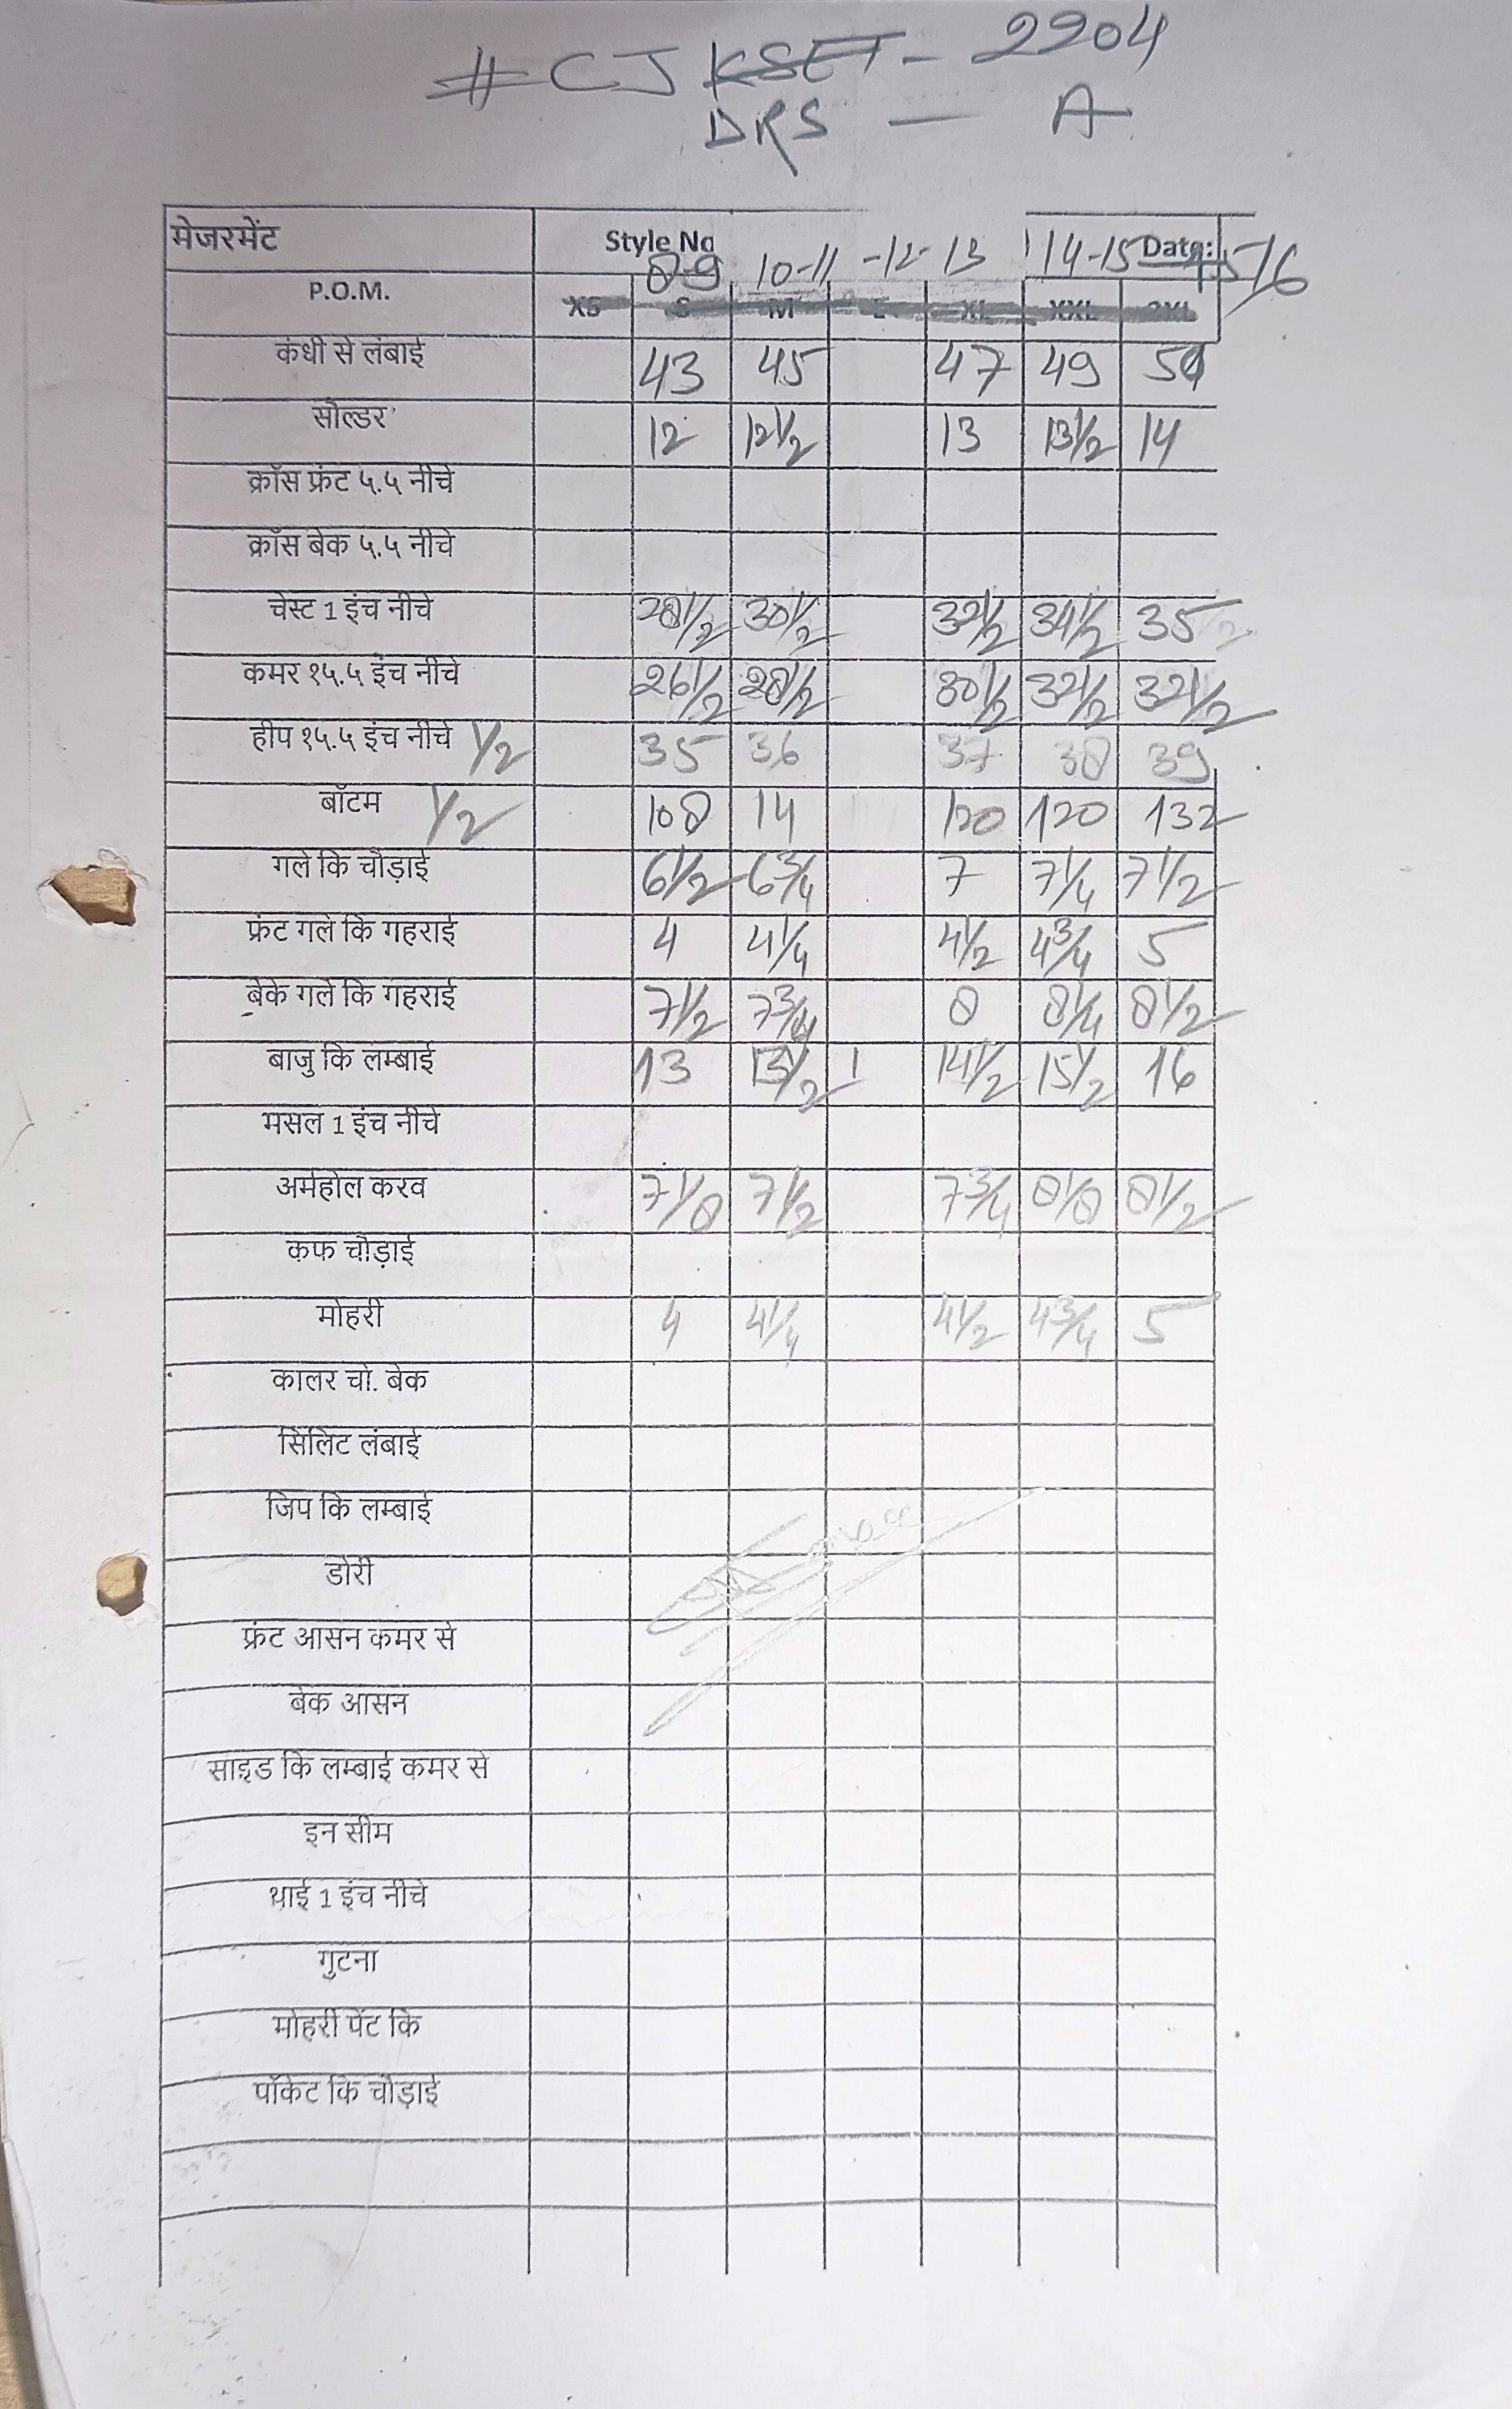 #CJ KSET - 2204
DRS — A
मेजरमेंट Style No Date:
8-9 10-11 -12-13 14-15 15-16
P.O.M. XS S M L XL XXL 3XL
कंधी से लंबाई 43 45 47 49 50
सौल्डर 12 12 1/2 13 13 1/2 14
क्रॉस फ्रंट ५.५ नीचे
क्रॉस बेक ५.५ नीचे
चेस्ट 1 इंच नीचे 28 1/2 30 1/2 32 1/2 34 1/2 35
कमर १५.५ इंच नीचे 26 1/2 28 1/2 30 1/2 32 1/2 32 1/2
हीप १५.५ इंच नीचे 1/2 35 36 37 38 39
बॉटम 1/2 108 14 120 120 132
गले कि चौड़ाई 6 1/2 6 3/4 7 7 1/4 7 1/2
फ्रंट गले कि गहराई 4 4 1/4 4 1/2 4 3/4 5
बेके गले कि गहराई 7 1/2 7 3/4 8 8 1/4 8 1/2
बाजु कि लम्बाई 13 13 1/2 14 1/2 15 1/2 16
मसल 1 इंच नीचे
अर्महोल करव 7 1/8 7 1/2 7 3/4 8 1/8 8 1/2
कफ चौड़ाई
मोहरी 4 4 1/4 4 1/2 4 3/4 5
कालर चो. बेक
सिलिट लंबाई
जिप कि लम्बाई
डोरी
फ्रंट आसन कमर से
बेक आसन
साइड कि लम्बाई कमर से
इन सीम
थाई 1 इंच नीचे
गुटना
मोहरी पेंट कि
पॉकेट कि चौड़ाई